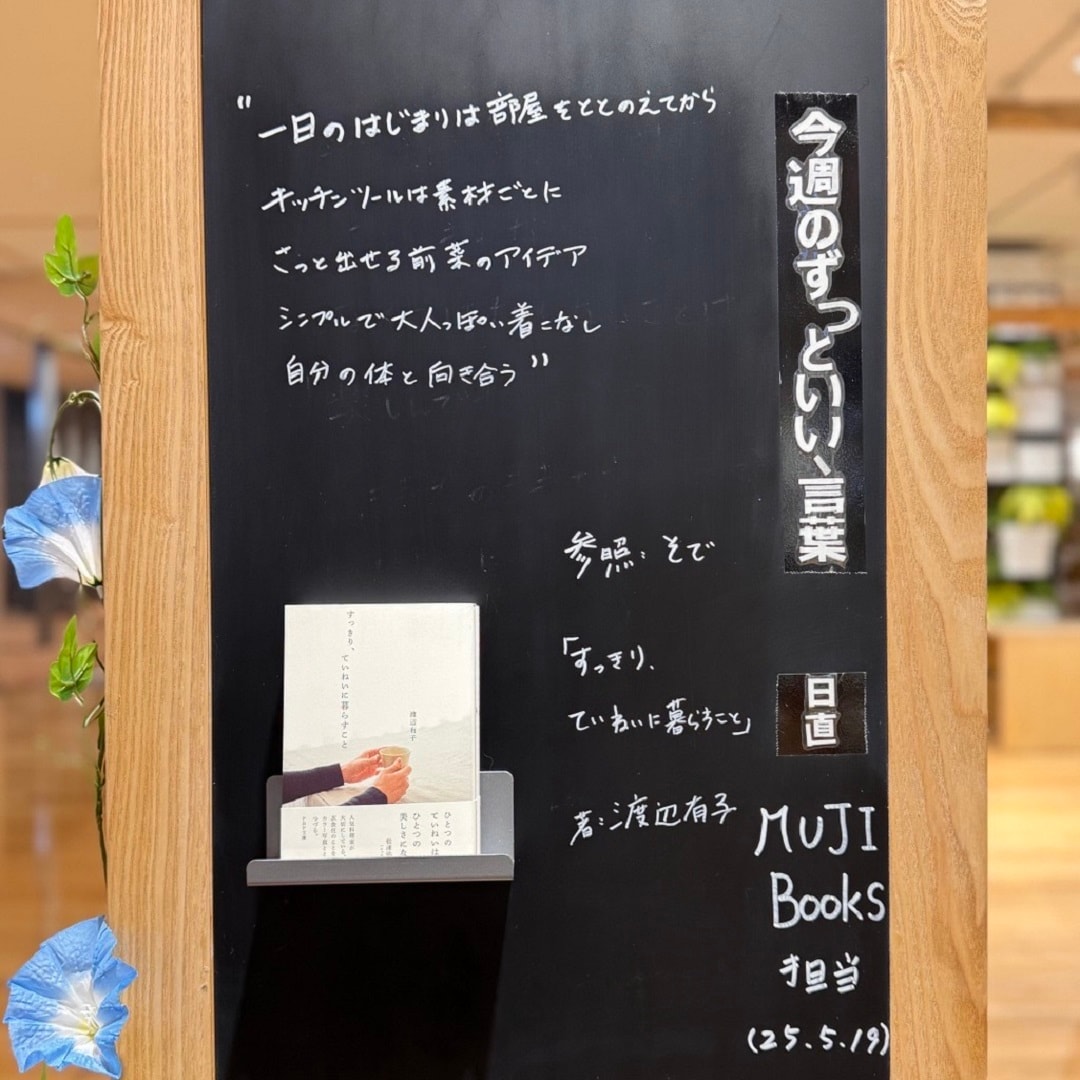 今週のずっといい、言葉
"一日のはじまりは部屋をととのえてから
キッチンツールは素材ごとに
さっと出せる前菜のアイデア
シンプルで大人っぽい着こなし
自分の体と向き合う"
参照：そで
「すっきり、
ていねいに暮らすこと」
著：渡辺有子
日直
MUJI
Books
担当
(25.5.19)
すっきり、ていねいに暮らすこと
渡辺有子
ひとつの
ていねいは
ひとつの
美しさにな
人気料理家が
大切にしている、